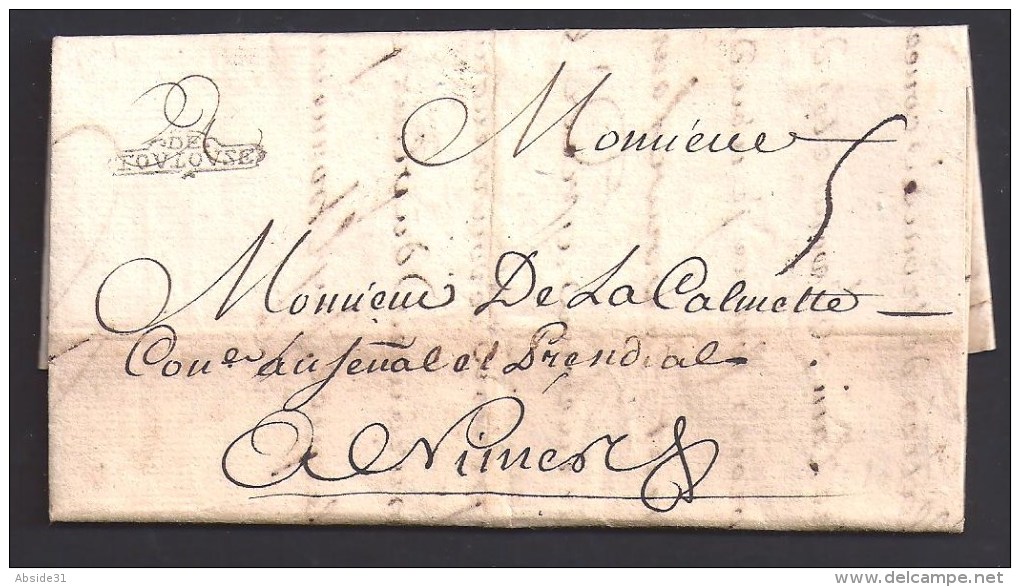 DE
TOVLOVSE
Monsieur
5
Monsieur De La Calmette
Con.er au senal et Presidial
A Nimes
Abside31
www.delcampe.net